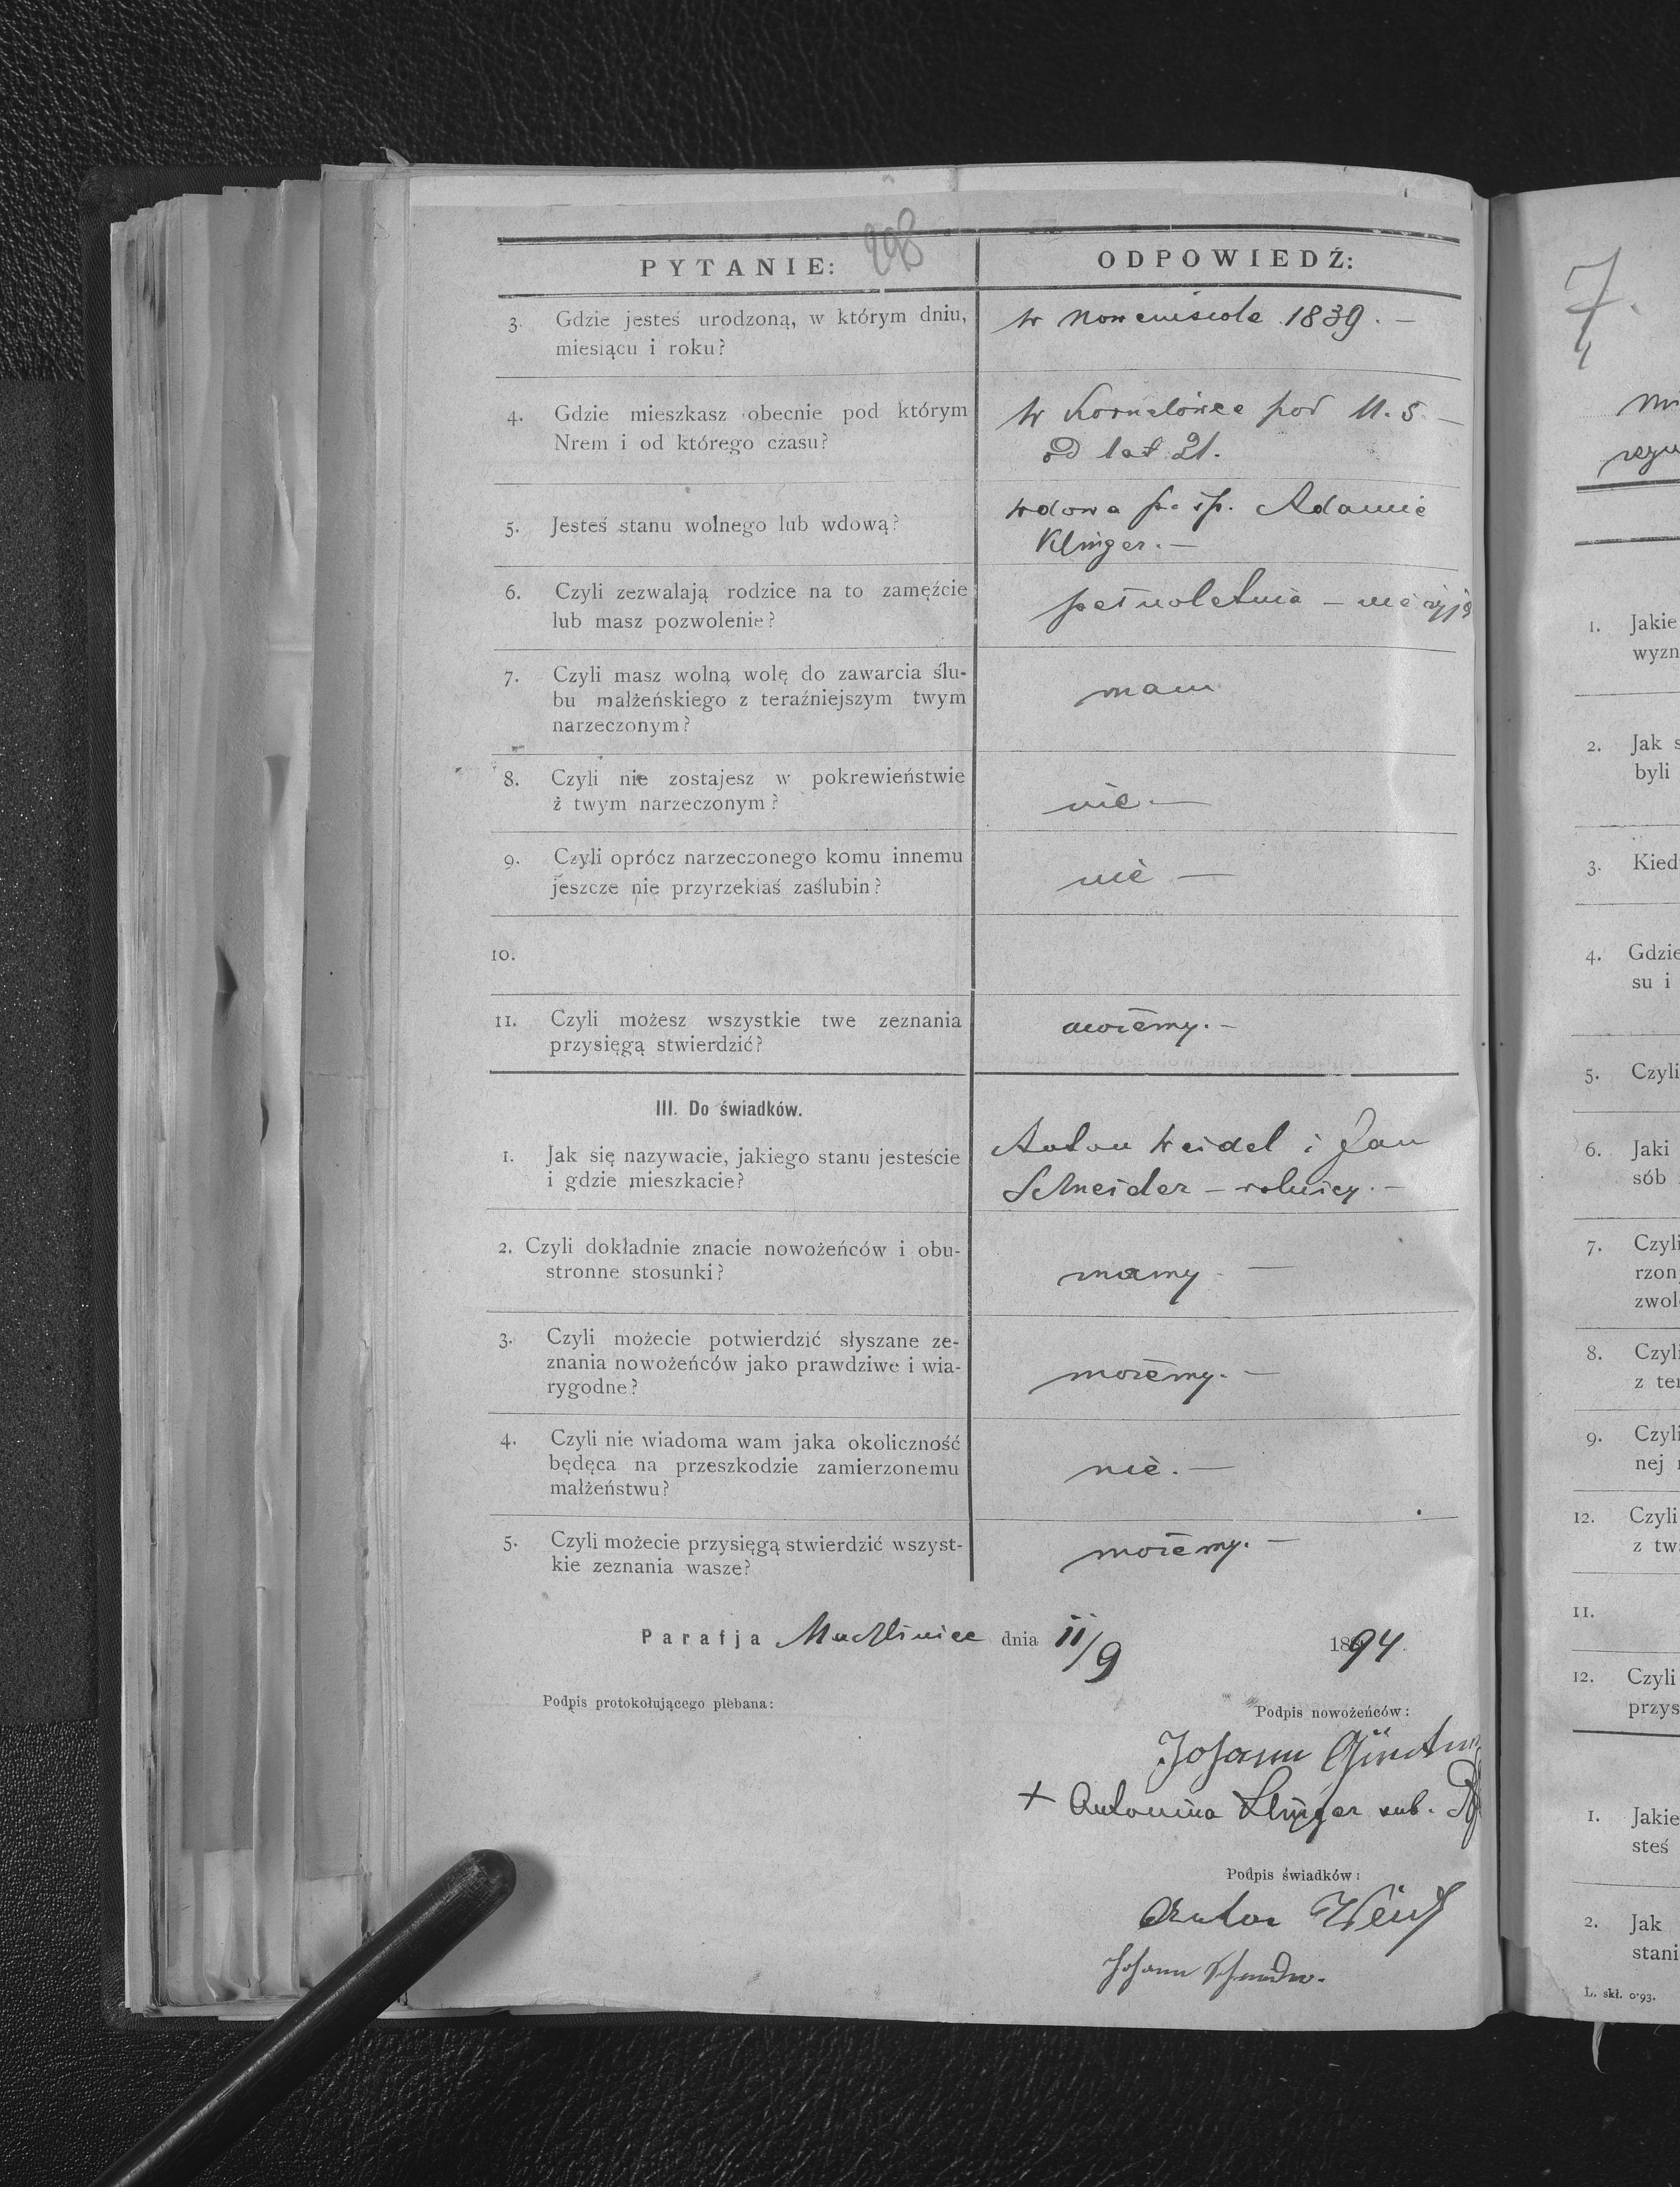 298
PYTANIE:
ODPOWIEDŹ:
3. Gdzie jesteś urodzoną, w którym dniu,
miesiącu i roku?
w Nowemsiole 1839. —
4. Gdzie mieszkasz obecnie pod którym
Nrem i od którego czasu?
w Kornelówce pod N. 5. —
od lat 21.
5. Jesteś stanu wolnego lub wdową?
wdowa po śp. Adamie
Klinger. —
6. Czyli zezwalają rodzice na to zamęźcie
lub masz pozwolenie?
pełnoletnia — nie żyją
7. Czyli masz wolną wolę do zawarcia ślu-
bu małżeńskiego z teraźniejszym twym
narzeczonym?
mam
8. Czyli nie zostajesz w pokrewieństwie
ż twym narzeczonym?
nie. —
9. Czyli oprócz narzeczonego komu innemu
jeszcze nie przyrzekłaś zaślubin?
nie —
10.
11. Czyli możesz wszystkie twe zeznania
przysięgą stwierdzić?
możemy. —
III. Do świadków.
1. Jak się nazywacie, jakiego stanu jesteście
i gdzie mieszkacie?
Anton Weidel i Jan
Schneider — rolnicy. —
2. Czyli dokładnie znacie nowożeńców i obu-
stronne stosunki?
znamy. —
3. Czyli możecie potwierdzić słyszane ze-
znania nowożeńców jako prawdziwe i wia-
rygodne?
możemy. —
4. Czyli nie wiadoma wam jaka okoliczność
będęca na przeszkodzie zamierzonemu
małżeństwu?
nie. —
5. Czyli możecie przysięgą stwierdzić wszyst-
kie zeznania wasze?
możemy. —
Parafja Machliniec dnia 11/9 1894.
Podpis protokołującego plebana:
Podpis nowożeńców:
Johann
+ Antonina Klinger
Podpis świadków:
Anton
Johann Schneider.
7.
1. Jakie
wyzn
2. Jak s
byli
3. Kied
4. Gdzie
su i
5. Czyli
6. Jaki
sób
7. Czyli
rzon
zwol
8. Czyli
z ter
9. Czyli
nej
12. Czyli
z tw
11.
12. Czyli
przys
1. Jakie
steś
2. Jak
stani
L. skł. 0·93.